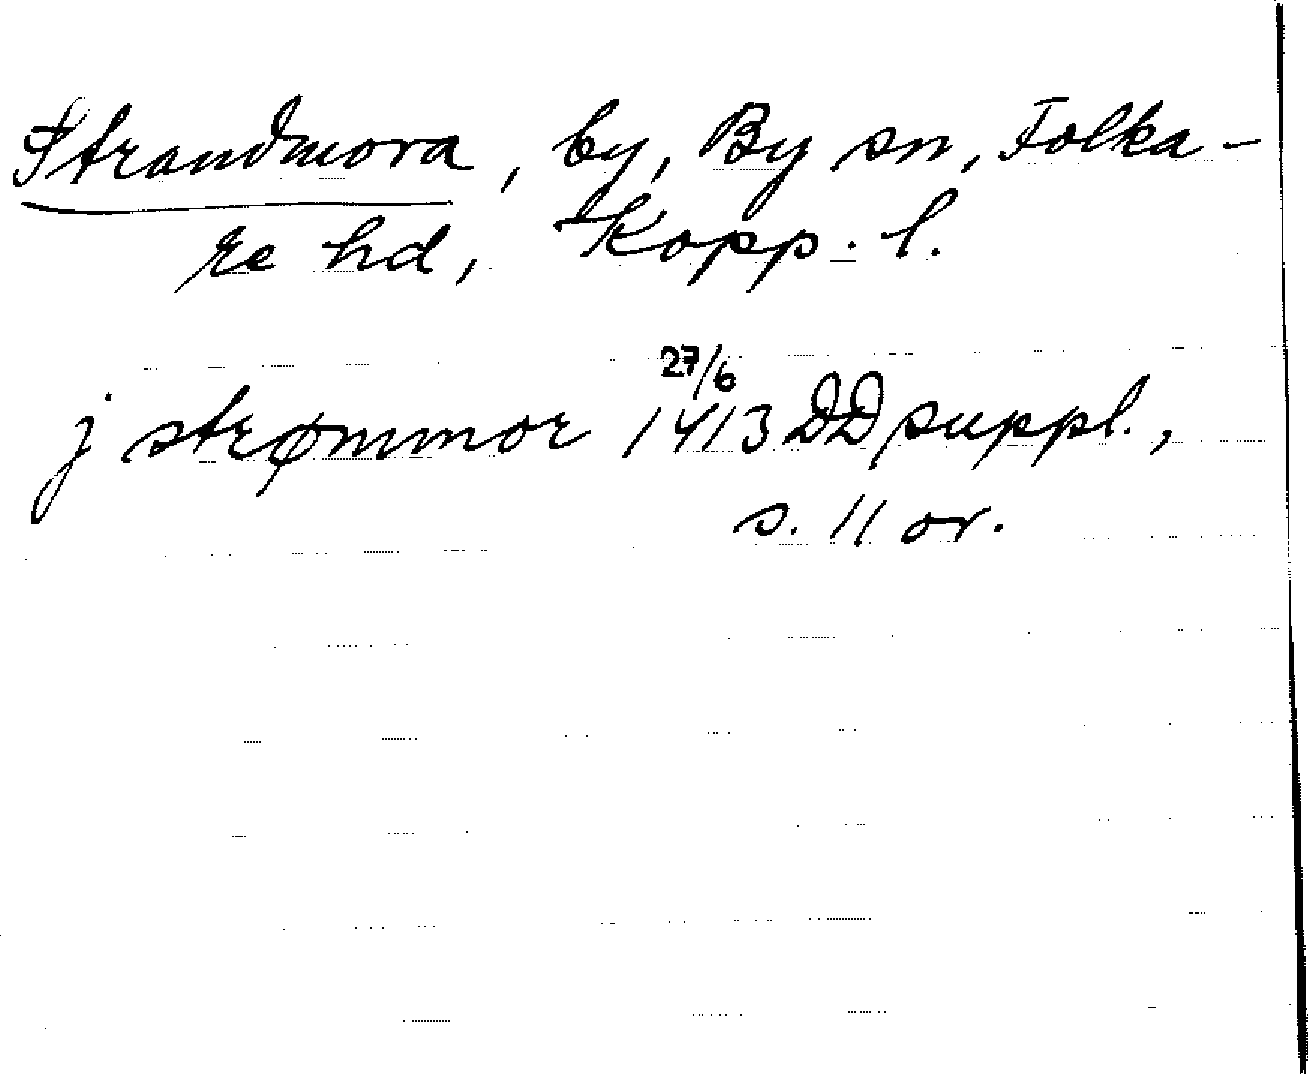 Strandmora, by, By sn, Folka-
re hd, Kopp. l.
27/6
j strømmor 1413 DD suppl.,
s. 11 or.